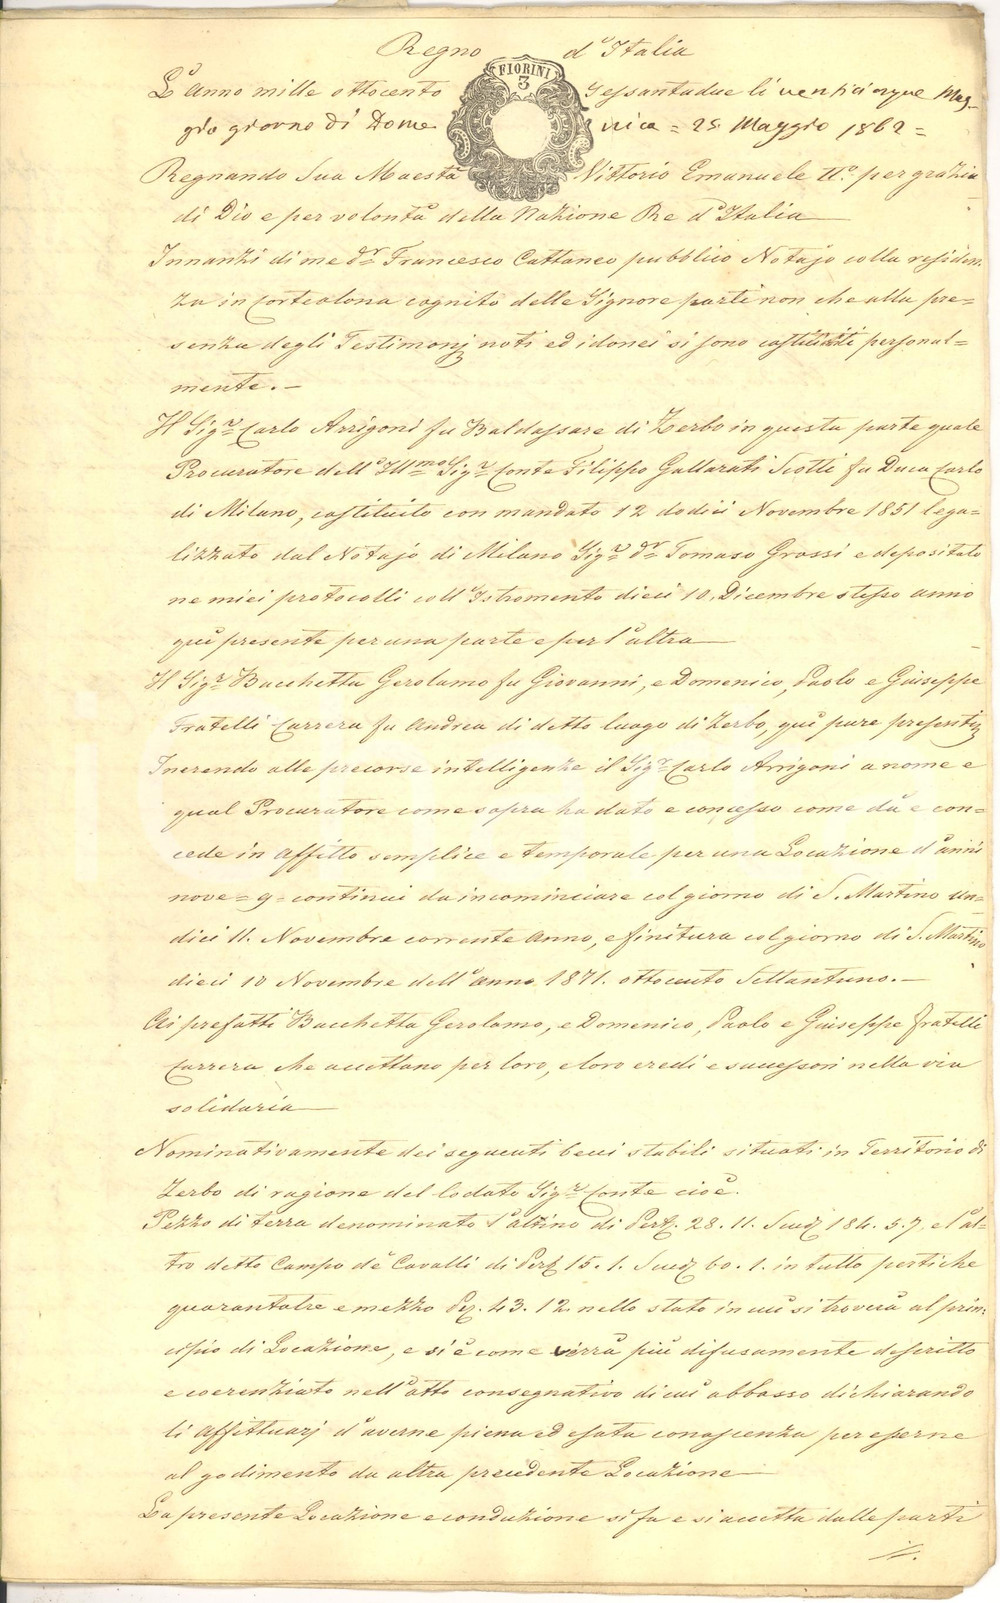 Regno d'Italia
FIORINI
3
L'anno mille ottocento sessantadue li venticinque Mag-
gio giorno di Dome nica = 25 Maggio 1862 =
Regnando Sua Maestà Vittorio Emanuele IIº. per grazia
di Dio e per volontà della Nazione Re d'Italia
Innanzi di me Dr Francesco Cattaneo pubblico Notajo colla residen-
za in Corteolona cognito delle Signore parti non che alla pre=
senza degli Testimonj noti ed idonei si sono costituiti personal=
mente. —
Il Sigr Carlo Arrigoni fu Baldassare di Zerbo in questa parte quale
Procuratore dell'Illmo Sigr Conte Filippo Gallarati Scotti fu Duca Carlo
di Milano, costituito con mandato 12 dodici Novembre 1851 lega=
lizzato dal Notajo di Milano Sigr Dr Tomaso Grossi e depositato
ne miei protocolli coll'Istromento dieci 10. Dicembre stesso anno
quì presente per una parte e per l'altra
Il Sigr Bacchetta Gerolamo fu Giovanni, e Domenico, Paolo e Giuseppe
Fratelli Carrera fu Andrea di detto luogo di Zerbo, quì pure presenti
Inerendo alle precorse intelligenze il Sigr Carlo Arrigoni a nome e
qual Procuratore come sopra ha dato e concesso come dà e con=
cede in affitto semplice e temporale per una Locazione d'anni
nove = 9 = continui da incominciare col giorno di S. Martino un=
dici 11. Novembre corrente anno, e finitura col giorno di S. Martino
dieci 10 Novembre dell'anno 1871. ottocento Settantuno. —
Ai prefatti Bacchetta Gerolamo, e Domenico, Paolo e Giuseppe fratelli
Carrera che accettano per loro, e loro eredi e successori nella via
solidaria
Nominativamente dei seguenti beni stabili situati in Territorio di
Zerbo di ragione del lodato Sigr Conte cioè.
Pezzo di terra denominato l' di Pert. 28. 11. Scud 184. 5. 7, e l'al=
tro detto Campo de Cavalli di Pert 15. 1. Scud 60. 1. in tutto pertiche
quarantatre e mezzo Pz. 43. 12. nello stato in cui si troverà al prin=
cipio di Locazione, e si e come verrà più difusamente descritto
e coerenziato nell'atto consegnativo di cui abbasso dichiarando
li affittuarj d'averne piena ed esata conoscenza per esserne
al godimento da altra precedente Locazione
La presente Locazione e conduzione si fa e si accetta dalle parti